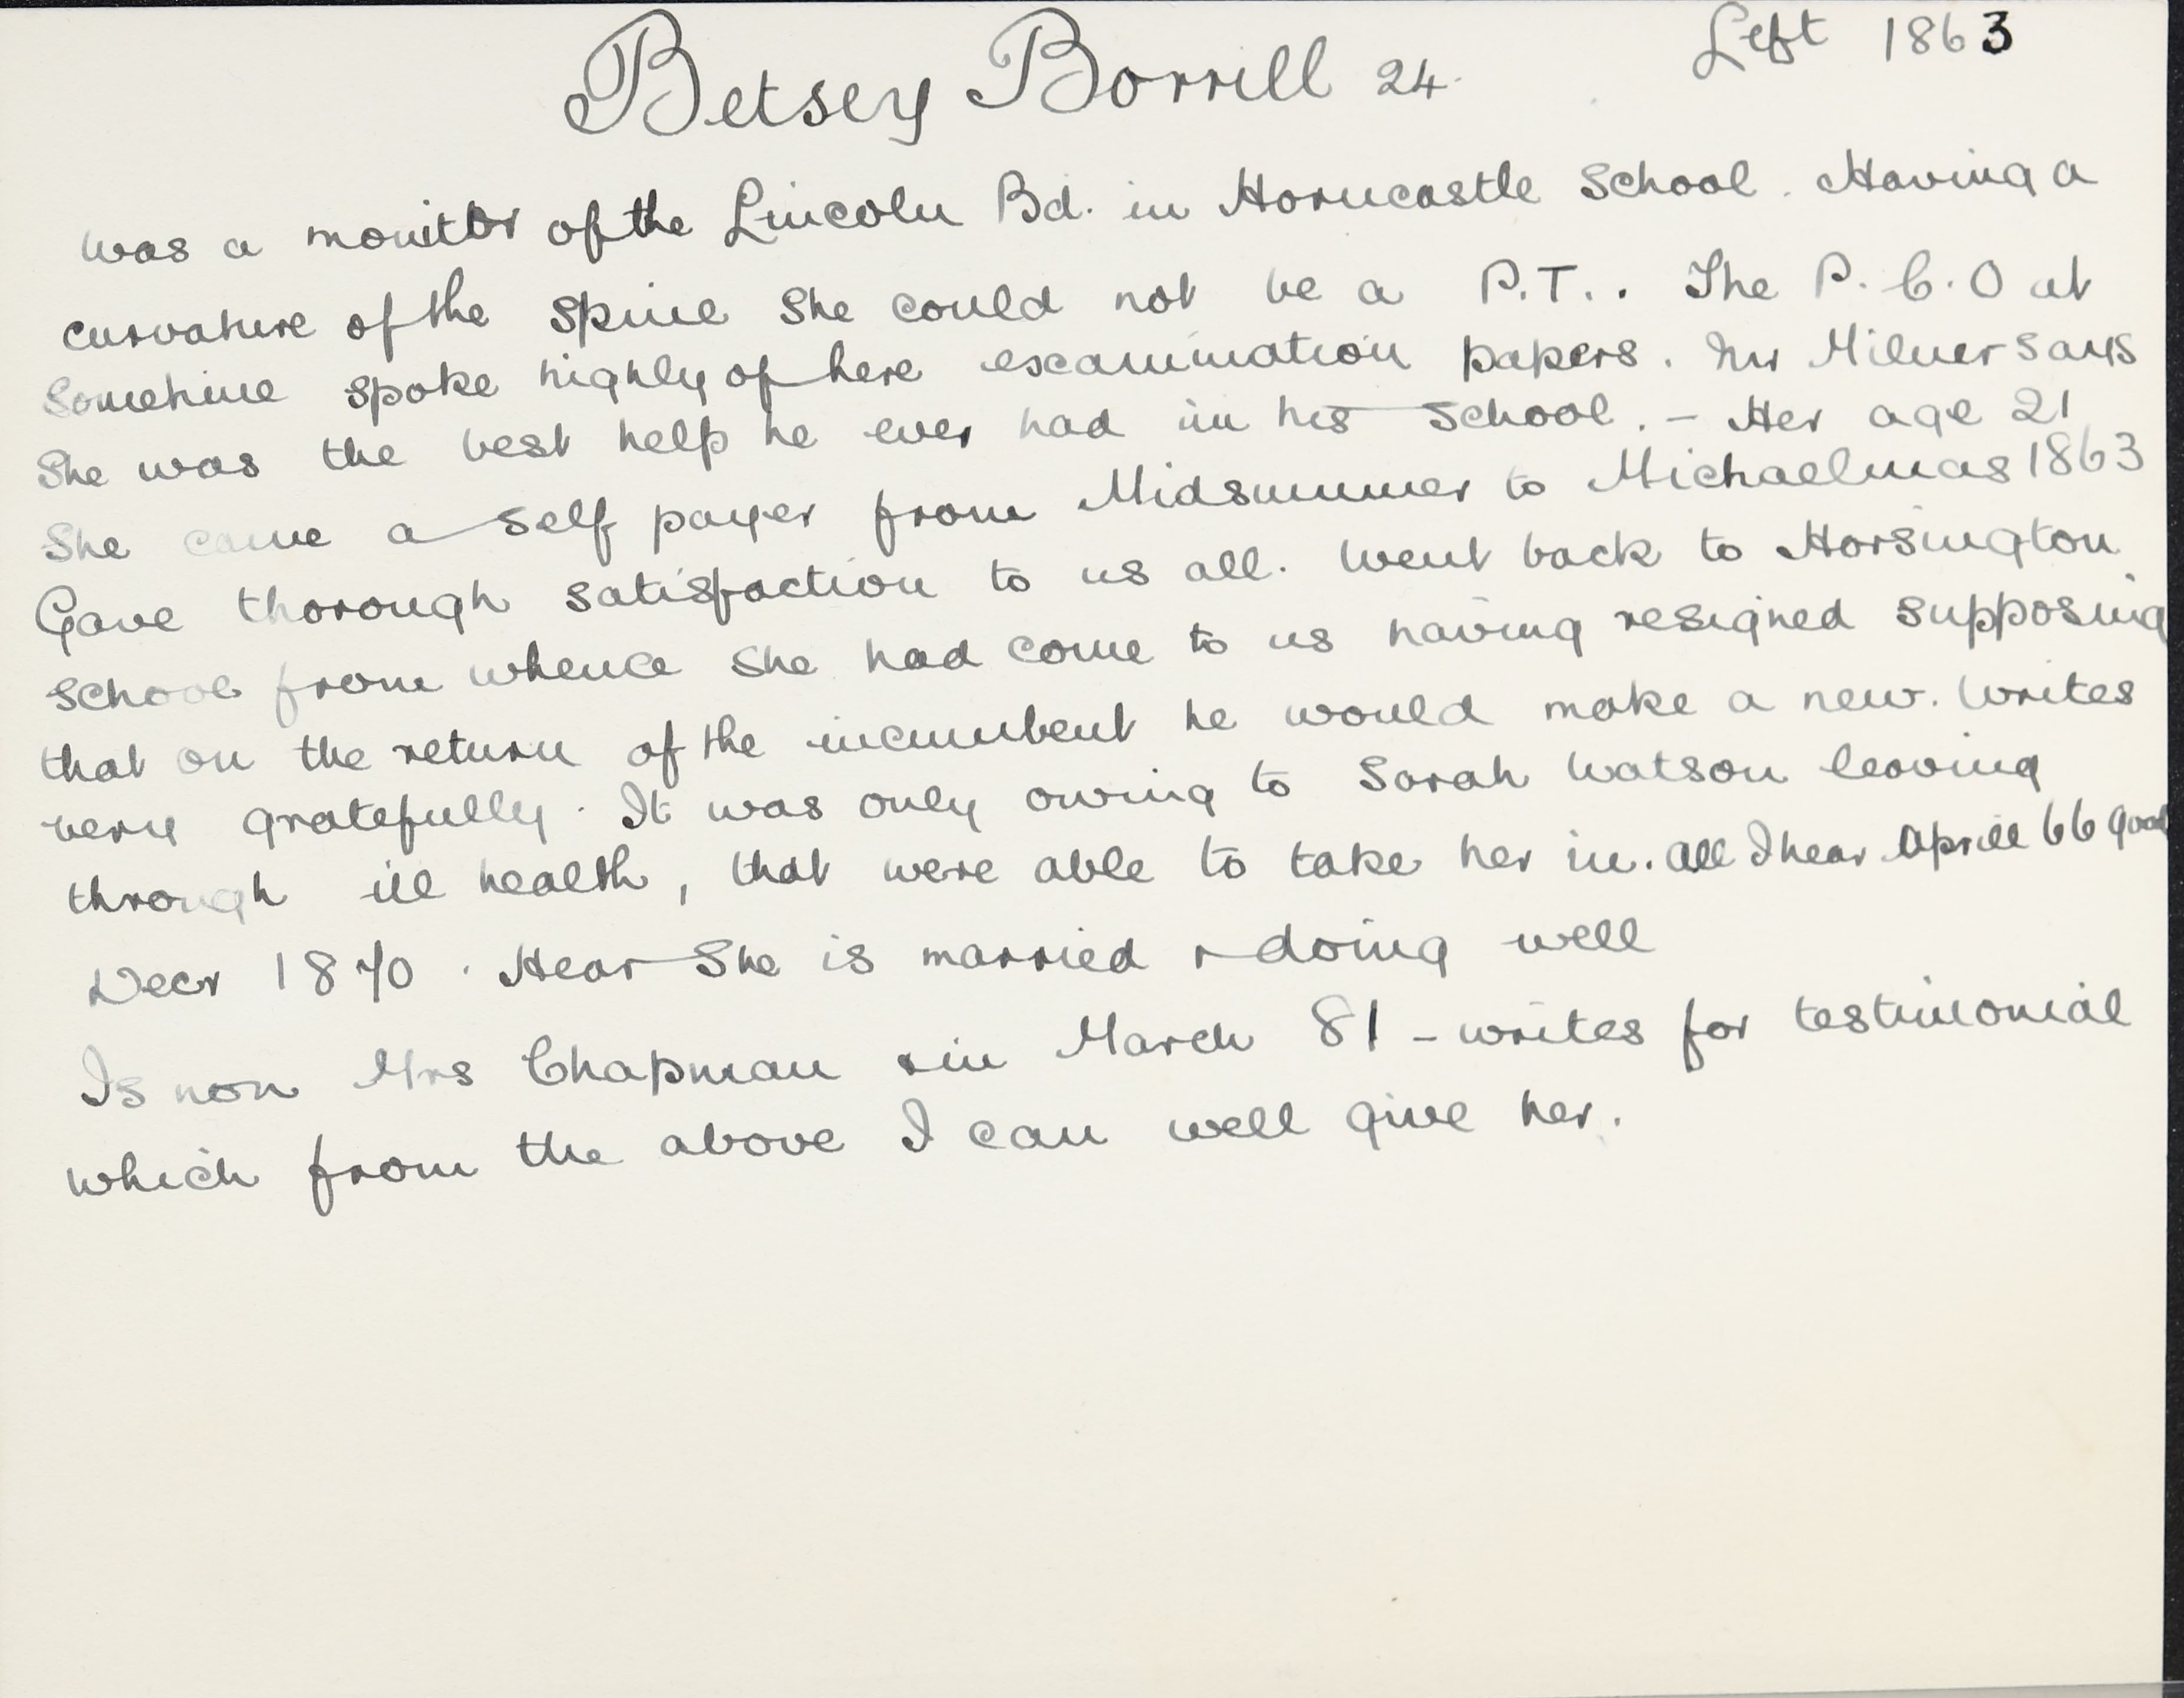 Betsey Borrill 24. Left 1863
was a monitor of the Lincoln Bd. in Horncastle School. Having a
curvature of the spine she could not be a P.T.. The P.C.O at
Sometime spoke highly of here examination papers. Mr Milner says
She was the best help he ever had in his school. - Her age 21
She came a self payer from Midsummer to Michaelmas 1863
Gave thorough satisfaction to us all. Went back to Horsington
school from whence she had come to us having resigned supposing
that on the return of the incumbent he would make a new. Writes
very gratefully. It was only owing to Sarah Watson leaving
through ill health, that were able to take her in. All I hear Aprill 66 good
Decr 1870. Hear She is married & doing well
Is now Mrs Chapman & in March 81 - writes for testimonial
which from the above I can well give her.